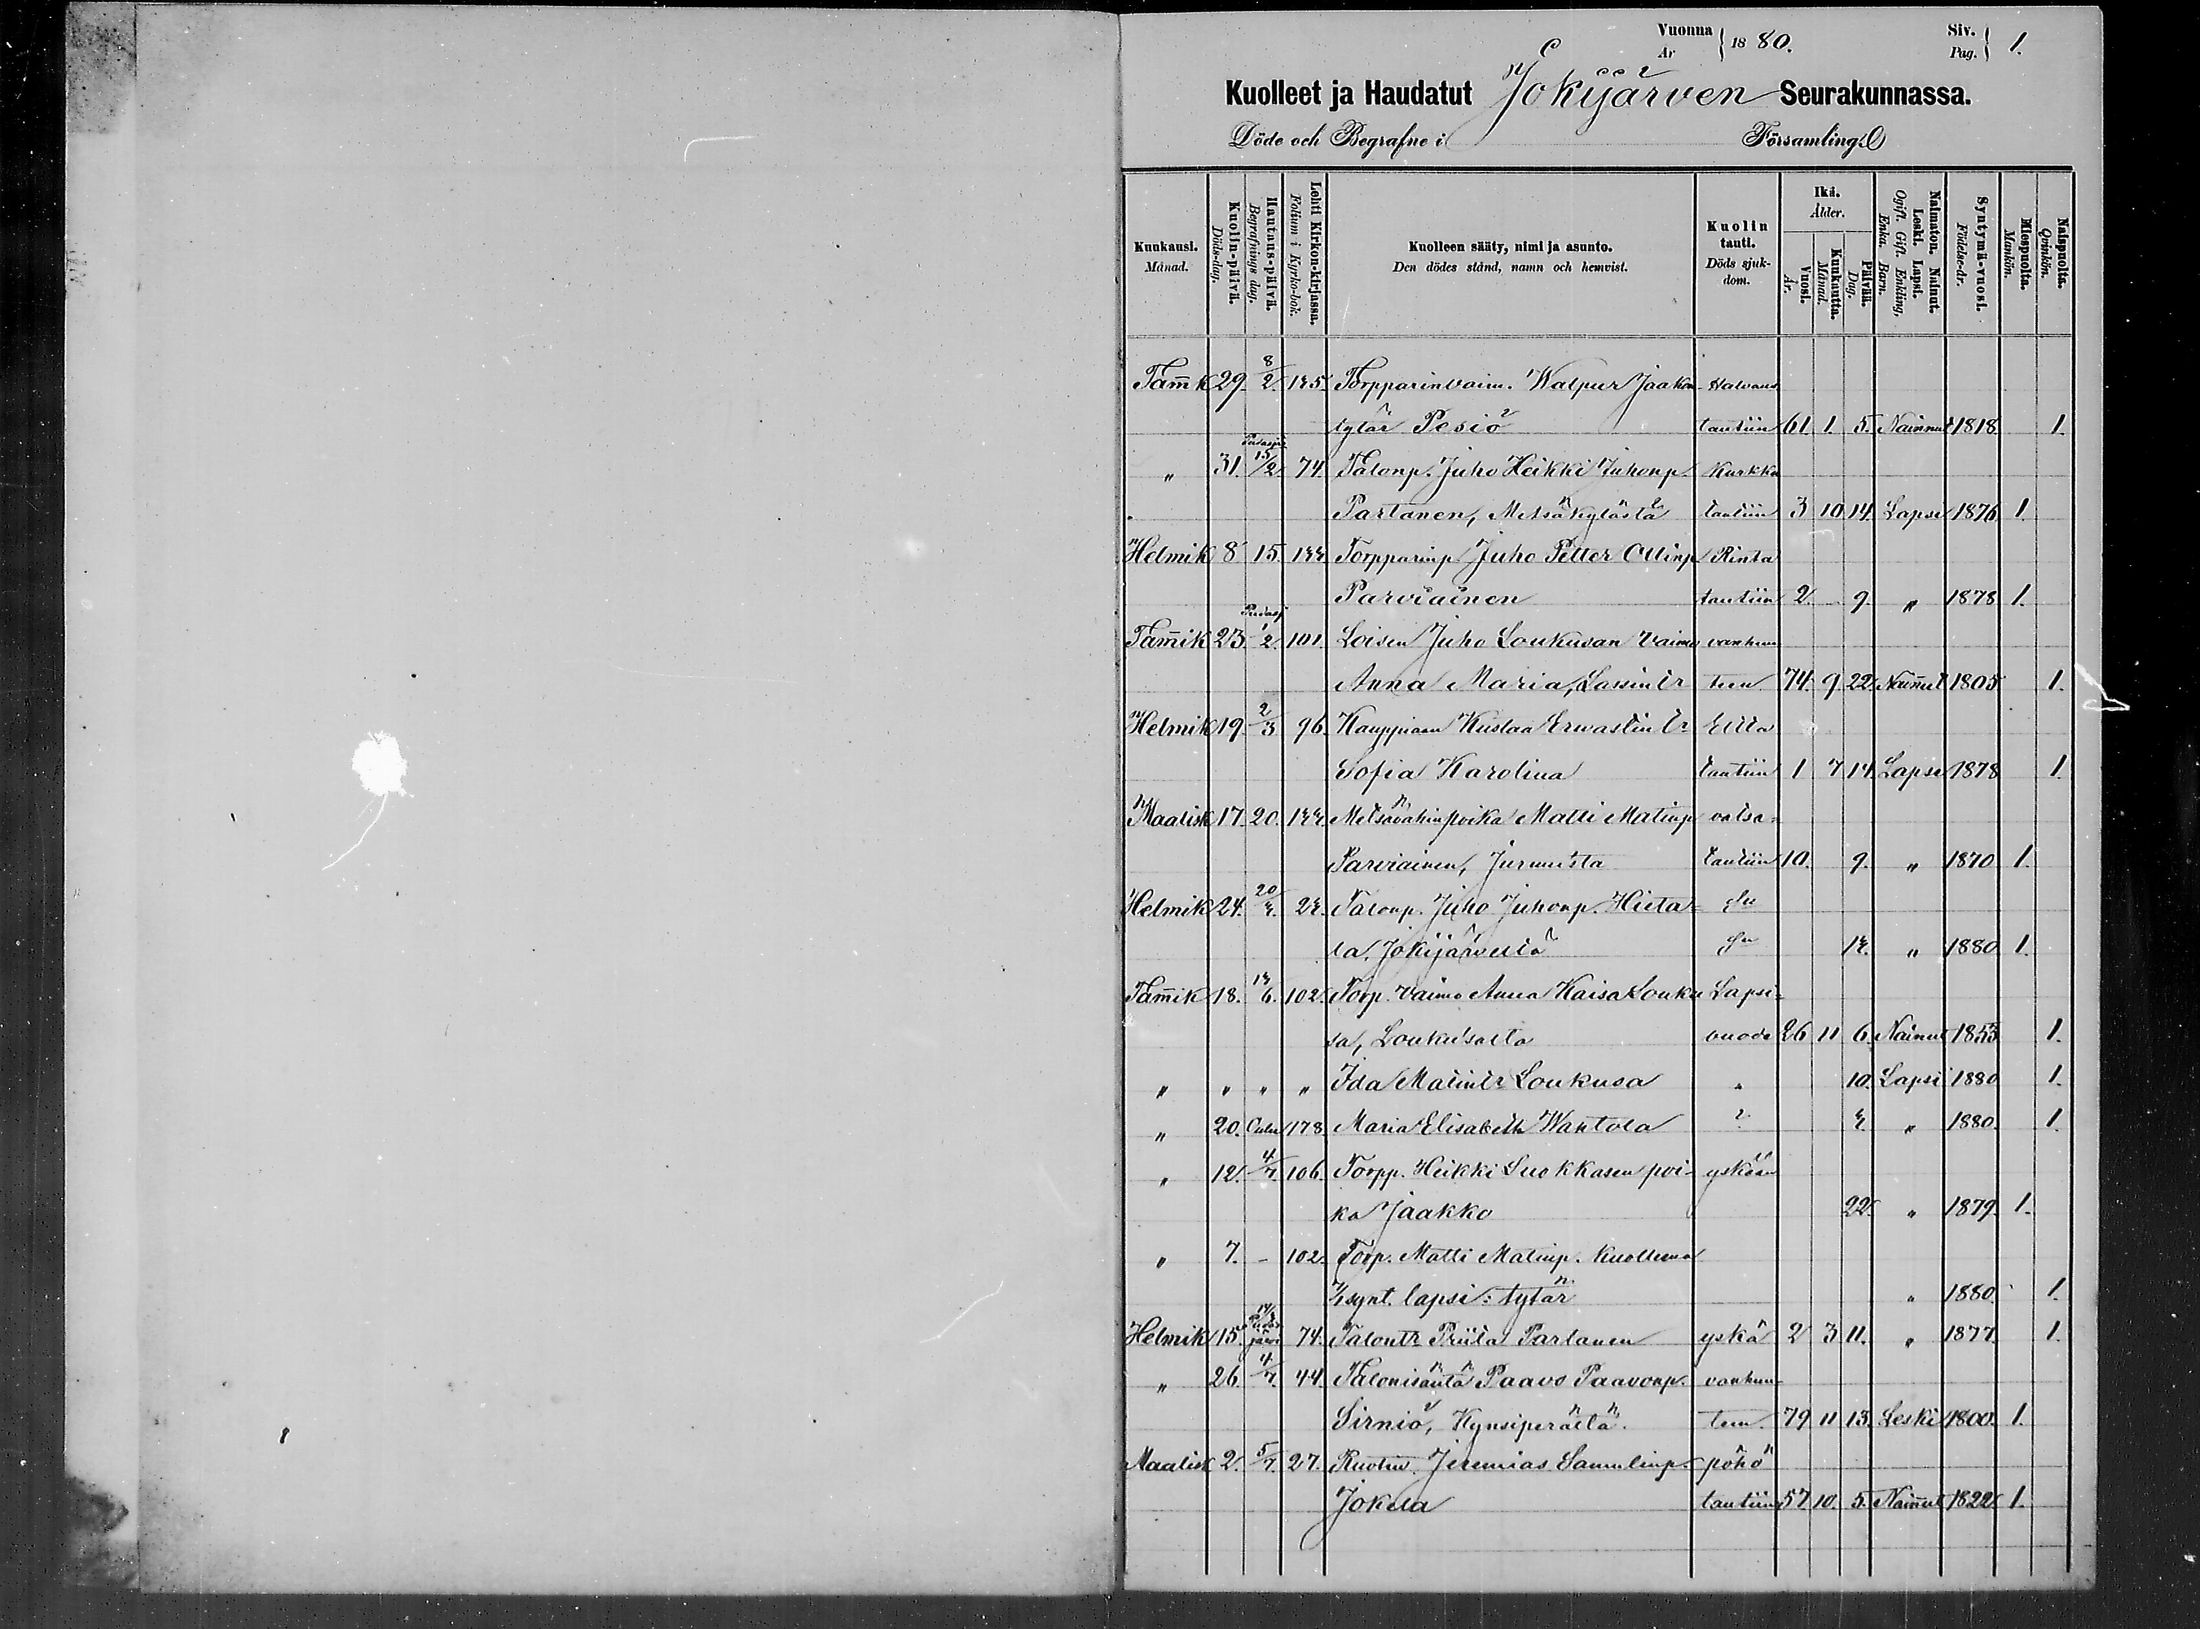 Vuonna År } 18 80. Siv. Pag. } 1.
Kuolleet ja Haudatut Jokijärven Seurakunnassa.
Döde och Begrafne i Församling
Kuukausi. Månad. Kuolin-päivä. Döds-dag. Hautaus-päivä. Begrafnings dag. Lehti Kirkon-kirjassa. Folium i Kyrko-bok. Kuolleen sääty, nimi ja asunto. Den dödes stånd, namn och hemvist. Kuolin tauti. Döds sjukdom. Ikä. Ålder. Vuosi. År. Kuukautta. Månad. Päivää. Dag. Naimaton. Nainut. Leski. Lapsi. Ogift. Gift. Enkling, Enka. Barn. Syntymä-vuosi. Födelse-år. Miespuolta. Mankön. Naispuolta. Qvinkön.
Tam̄k 29. 8/2. 145. Torpparinvaim. Walpur Jaakon Halvaus
tytär Pesiö tautiin 61. 1. 5. Nainnut 1818. 1.
" 31. 15/2 74. Talonp. Juho Heikki Juhonp. Kurkku
Partanen, Metsäkylästä tautiin 3 10 14. Lapsi 1876 1.
Helmik 8 15. 144. Torpparinp. Juho Petter Ollinp Rinta
Parviainen tautiin 2. 9. " 1878 1.
Tam̄ik 23. 1/2. 101. Loisen Juho Loukusan Vaimo vanhuu
Anna Maria, Lassintr teen 74. 9 22. Nainnut 1805 1.
Helmik 19. 2/3 96. Kauppiaan Kustaa Erwastin tr
Sofia Karolina tautiin 1 7 14. Lapsi 1878 1.
Maalisk 17. 20. 144. Metsävahinpoika Matti Matinp vatsa-
Parviainen, Jurmusta tautiin 10. 9. " 1870 1.
Helmik 24. 20/4. 24. Talonp. Juho Juhonp. Hieta-
la, Jokijärveltä 14. " 1880 1.
Tam̄ik 18. 14/6. 102. Torp. Vaimo Anna Kaisa Louku Lapsi-
sa, Loukusalta vuode 26 11 6. Nainut 1853 1.
" " " " Ida Matintr Loukusa " 10. Lapsi 1880 1.
" 20. Oulu 178. Maria Elisabeth Wantola ? 4. " 1880. 1.
" 12. 4/7. 106. Torpp. Heikki Luokkasen poi- yskään
ka Jaakko 22. " 1879. 1.
" 7. - 102. Torp. Matti Matinp. Kuolleena
synt. lapsi: tytär " 1880. 1.
Helmik 15. 74. Talontr Priita Partanen yskä 2 3 11. " 1877. 1.
" 26. 4/7. 44. Talonisäntä Paavo Paavonp. vanhuu-
Sirniö, Kynsiperältä. teen. 79 11 13. Leski 1800. 1.
Maalisk 2. 5/7. 27. Jeremias Samulinp. pöhö
Jokela tautiin 57 10. 5. Nainnut 1822. 1.